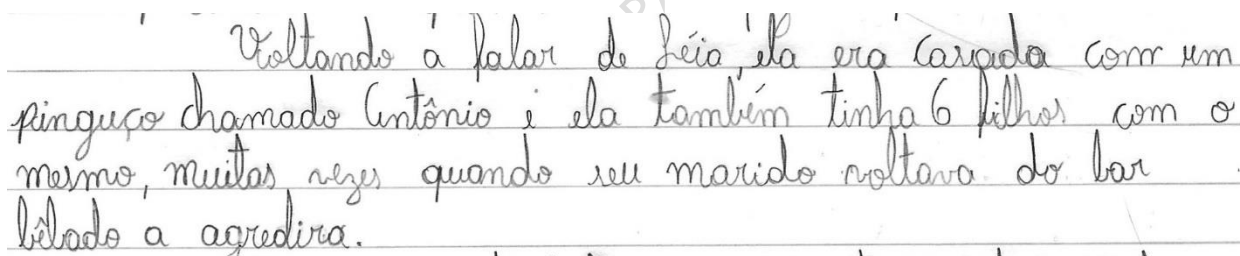 Voltando a falar de feia, ela era casada com um
pinguço chamado Antônio e ela também tinha 6 filhos com o
mesmo, muitas vezes quando seu marido voltava do bar
bêbado a agredira.